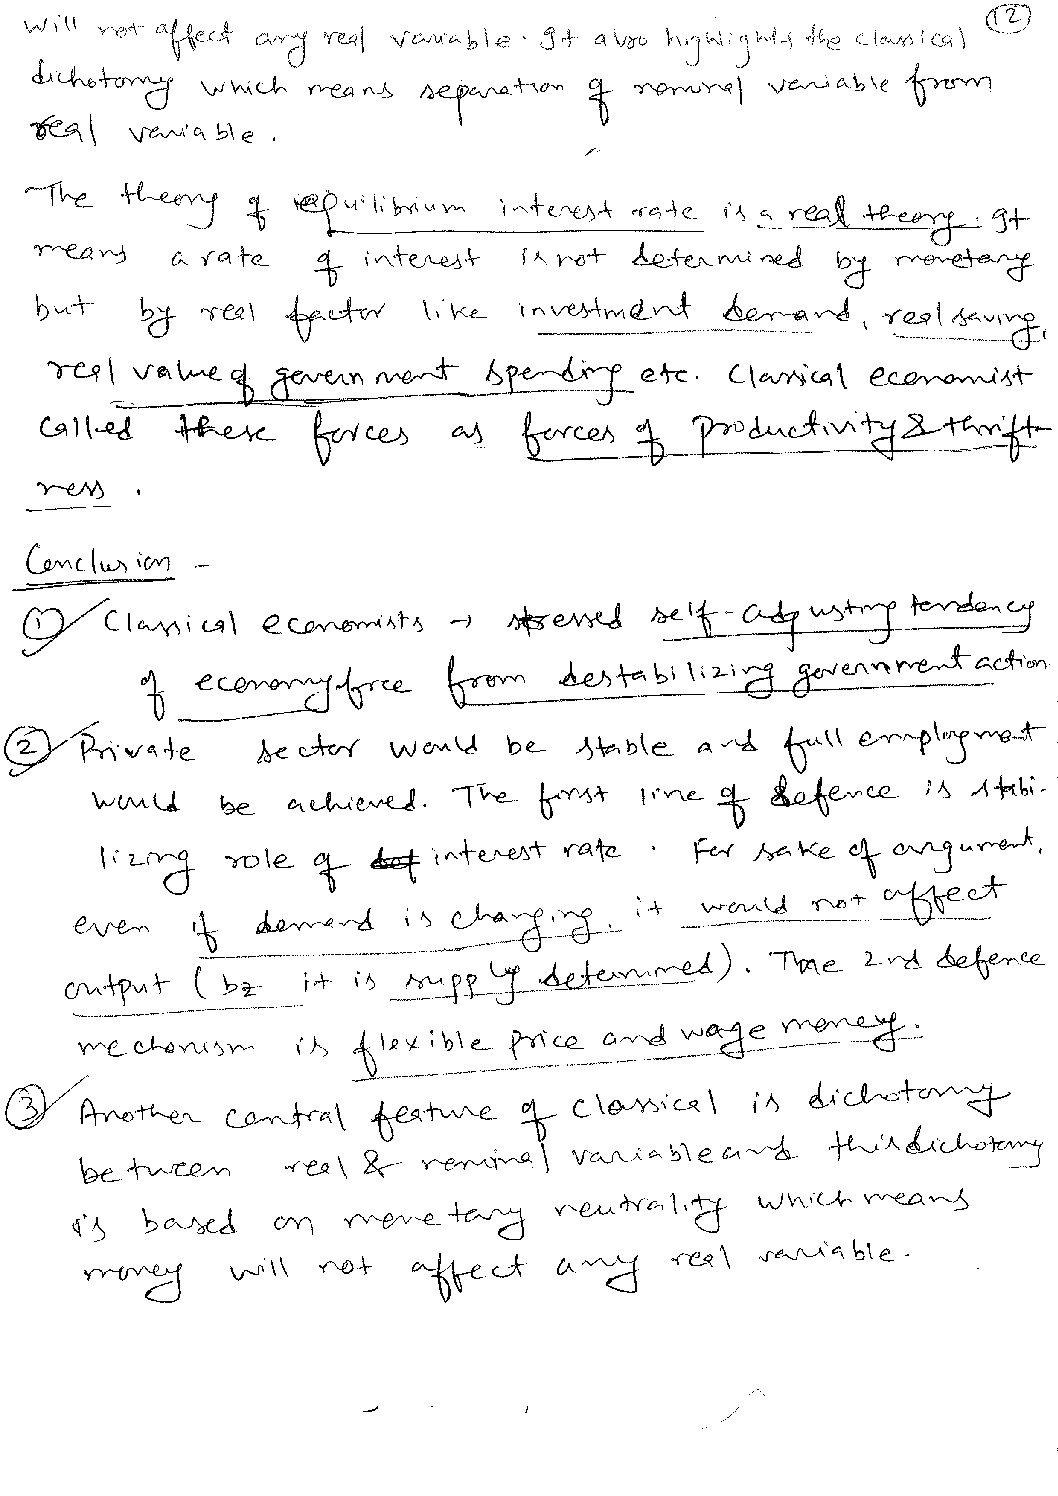 12
will not affect any real variable. It also highlights the classical
dichotomy which means separation of nominal variable from
real variable.
The theory of equilibrium interest rate is a real theory. It
means a rate of interest is not determined by monetary
but by real factor like investment demand, real saving,
real value of government spending etc. Classical economist
called these forces as forces of productivity & thrift-
ness.
Conclusion -
1 Classical economists → stressed self-adjusting tendency
of economy free from destabilizing government action
2 Private sector would be stable and full employment
would be achieved. The first line of defence is stabi-
lizing role of interest rate. For sake of argument,
even if demand is changing, it would not affect
output (bz it is supply determined). The 2nd defence
mechanism is flexible price and wage money.
3 Another central feature of classical is dichotomy
between real & nominal variable and this dichotomy
is based on monetary neutrality which means
money will not affect any real variable.